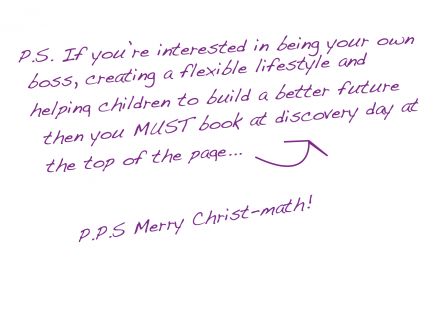 P.S. If you're interested in being your own
boss, creating a flexible lifestyle and
helping children to build a better future
then you MUST book at discovery day at
the top of the page...
P.P.S Merry Christ-math!